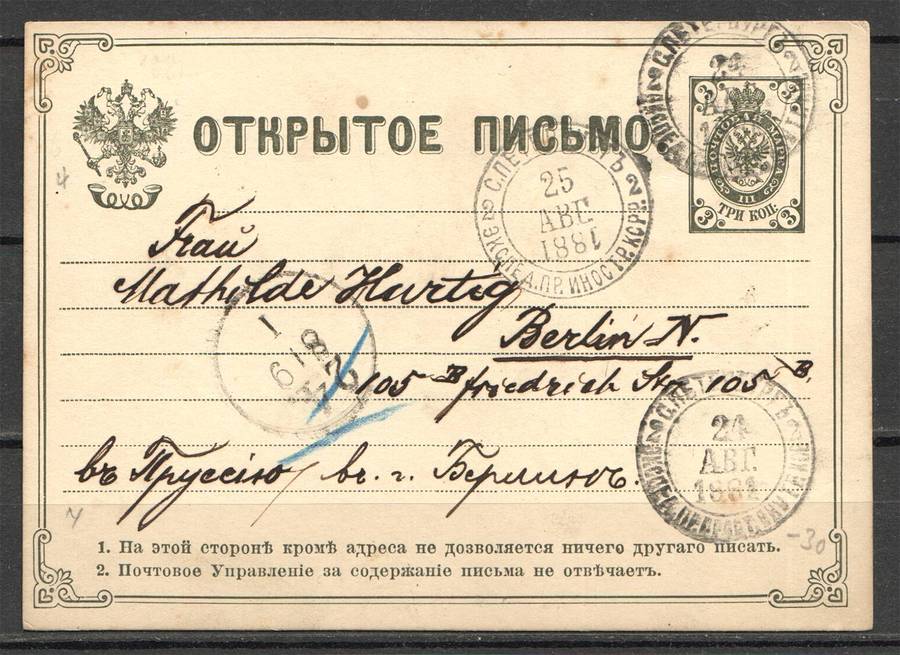 ОТКРЫТОЕ ПИСЬМО
3 3
ТРИ КОП:
3 3
С.ПЕТЕРБУРГЪ 2
24
АВГ.
С.ПЕТЕРБУРГЪ 2
25
АВГ.
1881
2 ЭКСПЕД. ПР. ИНОСТР. КОРР.
Frau
Mathilde Hurtig
Berlin N.
105 B friedrich Str. 105 B.
въ Пруссію / въ г. Берлинъ.
С.ПЕТЕРБУРГЪ 2
24
АВГ.
1881
1. На этой сторонѣ кромѣ адреса не дозволяется ничего другаго писать.
2. Почтовое Управленіе за содержаніе письма не отвѣчаетъ.
-30